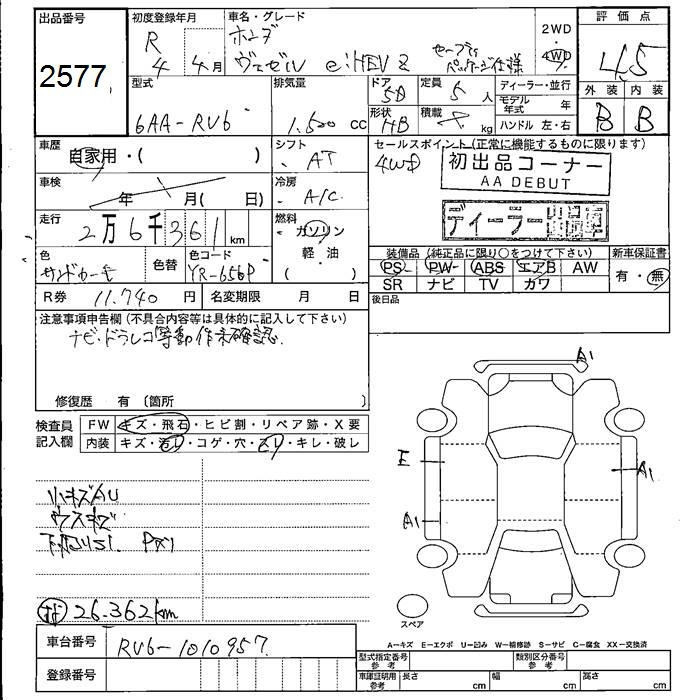 出品番号
2577
初度登録年月
R 4年 4月
車名・グレード
ホンダ
ヴェゼル e:HEV Z セーフティパッケージ仕様
2WD・4WD
評価点
4.5
外装 内装
B B
型式
6AA-RV6
排気量
1.500 cc
ドア
5D
形状
HB
定員
5人
積載
kg
ディーラー・並行
モデル年式 年
ハンドル 左・右
車歴
自家用・( )
車検
年 月( 日)
走行
2万6千361km
色
サンドカーキ
色替
色コード
YR-656P
シフト
AT
冷房
A/C
燃料
ガソリン・軽油
( )
R券 11.740 円
名変期限 月 日
セールスポイント(正常に機能するものに限ります)
4WD
初出品コーナー
AA DEBUT
ディーラー
装備品(純正品に限り○をつけて下さい)
PS PW ABS エアB AW
SR ナビ TV カワ
新車保証書
有・無
後日品
注意事項申告欄(不具合内容等は具体的に記入して下さい)
ナビ・ドラレコ等動作未確認.
修復歴 有〔箇所 〕
検査員記入欄
FW キズ・飛石・ヒビ割・リペア跡・X要
内装 キズ・汚レ・コゲ・穴・スレ・キレ・破レ
小キズAU
ウスキズ
26.362km
車台番号 RV6-1010957
登録番号
A1
E
A1
A1
スペア
A-キズ E-エクボ U-凹み W-補修跡 S-サビ C-腐食 XX-交換済
型式指定番号 参考
類別区分番号 参考
車庫証明用 参考 長さ cm 幅 cm 高さ cm